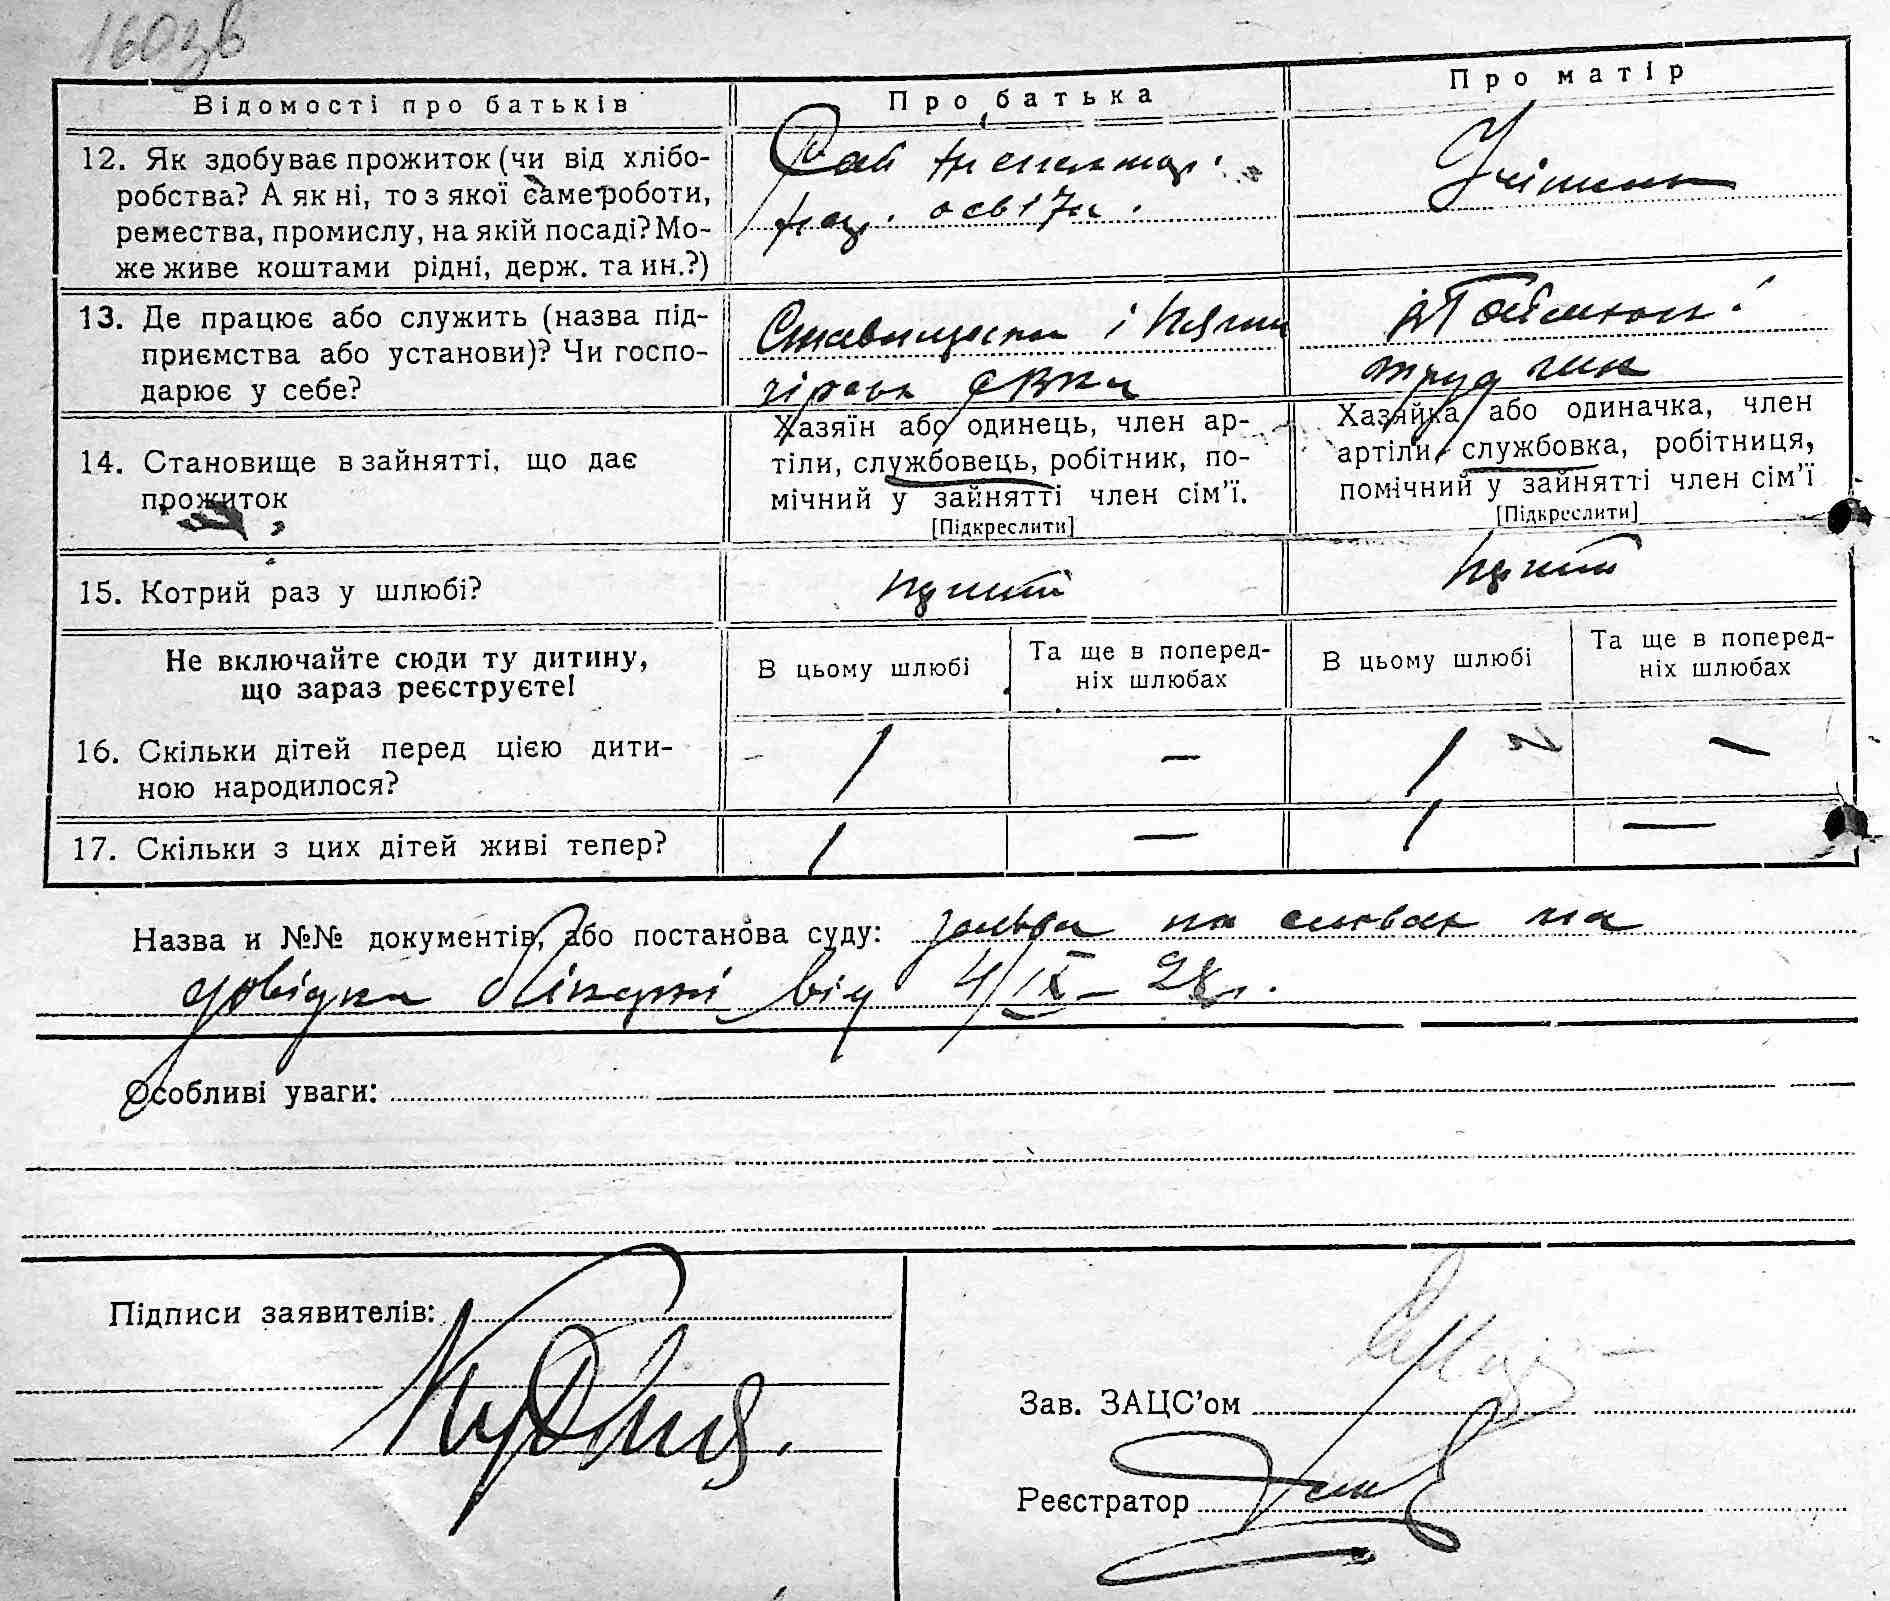 160зв
Відомості про батьків
Про батька
Про матір
12. Як здобуває прожиток (чи від хлібо-
робства? А як ні, то з якої саме роботи,
ремества, промислу, на якій посаді? Мо-
же живе коштами рідні, держ. та ин.?)
Рай
осв
13. Де працює або служить (назва під-
приємства або установи)? Чи госпо-
дарює у себе?
і
14. Становище в зайнятті, що дає
прожиток
Хазяїн або одинець, член ар-
тіли, службовець, робітник, по-
мічний у зайнятті член сім'ї.
[Підкреслити]
Хазяйка або одиначка, член
артіли, службовка, робітниця,
помічний у зайнятті член сім'ї
[Підкреслити]
15. Котрий раз у шлюбі?
Не включайте сюди ту дитину,
що зараз реєструєте!
В цьому шлюбі
Та ще в поперед-
ніх шлюбах
В цьому шлюбі
Та ще в поперед-
ніх шлюбах
16. Скільки дітей перед цією дити-
ною народилося?
1 — 1 —
17. Скільки з цих дітей живі тепер?
1 — 1 —
Назва и №№ документів, або постанова суду: заява на словах та
довідка лікарні від 4/IX – 28 р.
Особливі уваги:
Підписи заявителів:
Зав. ЗАЦС'ом
Реєстратор